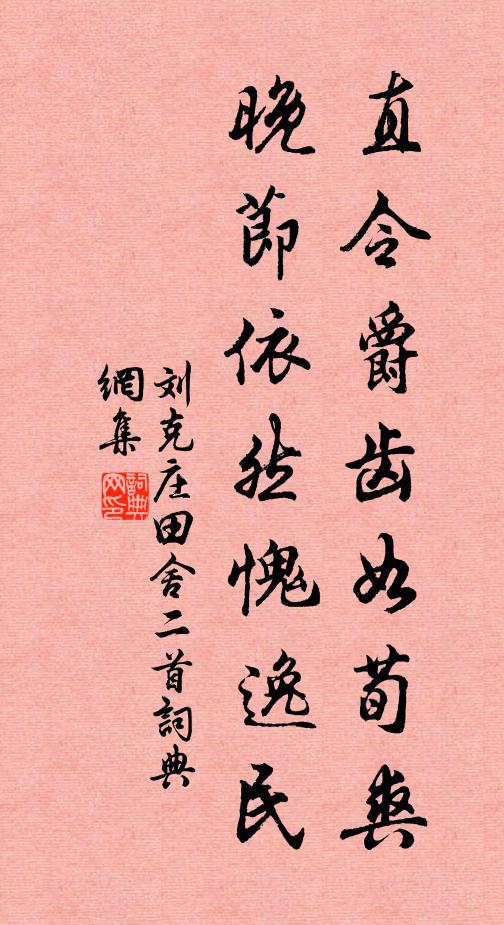 直令爵齿如荀爽
晚節依然愧逸民
刘克庄田舍二首詞典
網集
詞典
网印